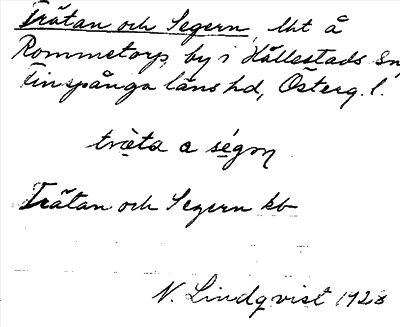 Trätan och Segern, lht å
Rommetorp, by i Hällestads sn,
Finspånga läns hd, Österg. l.
träta o ségɔn
Trätan och Segern kb
N. Lindqvist 1928